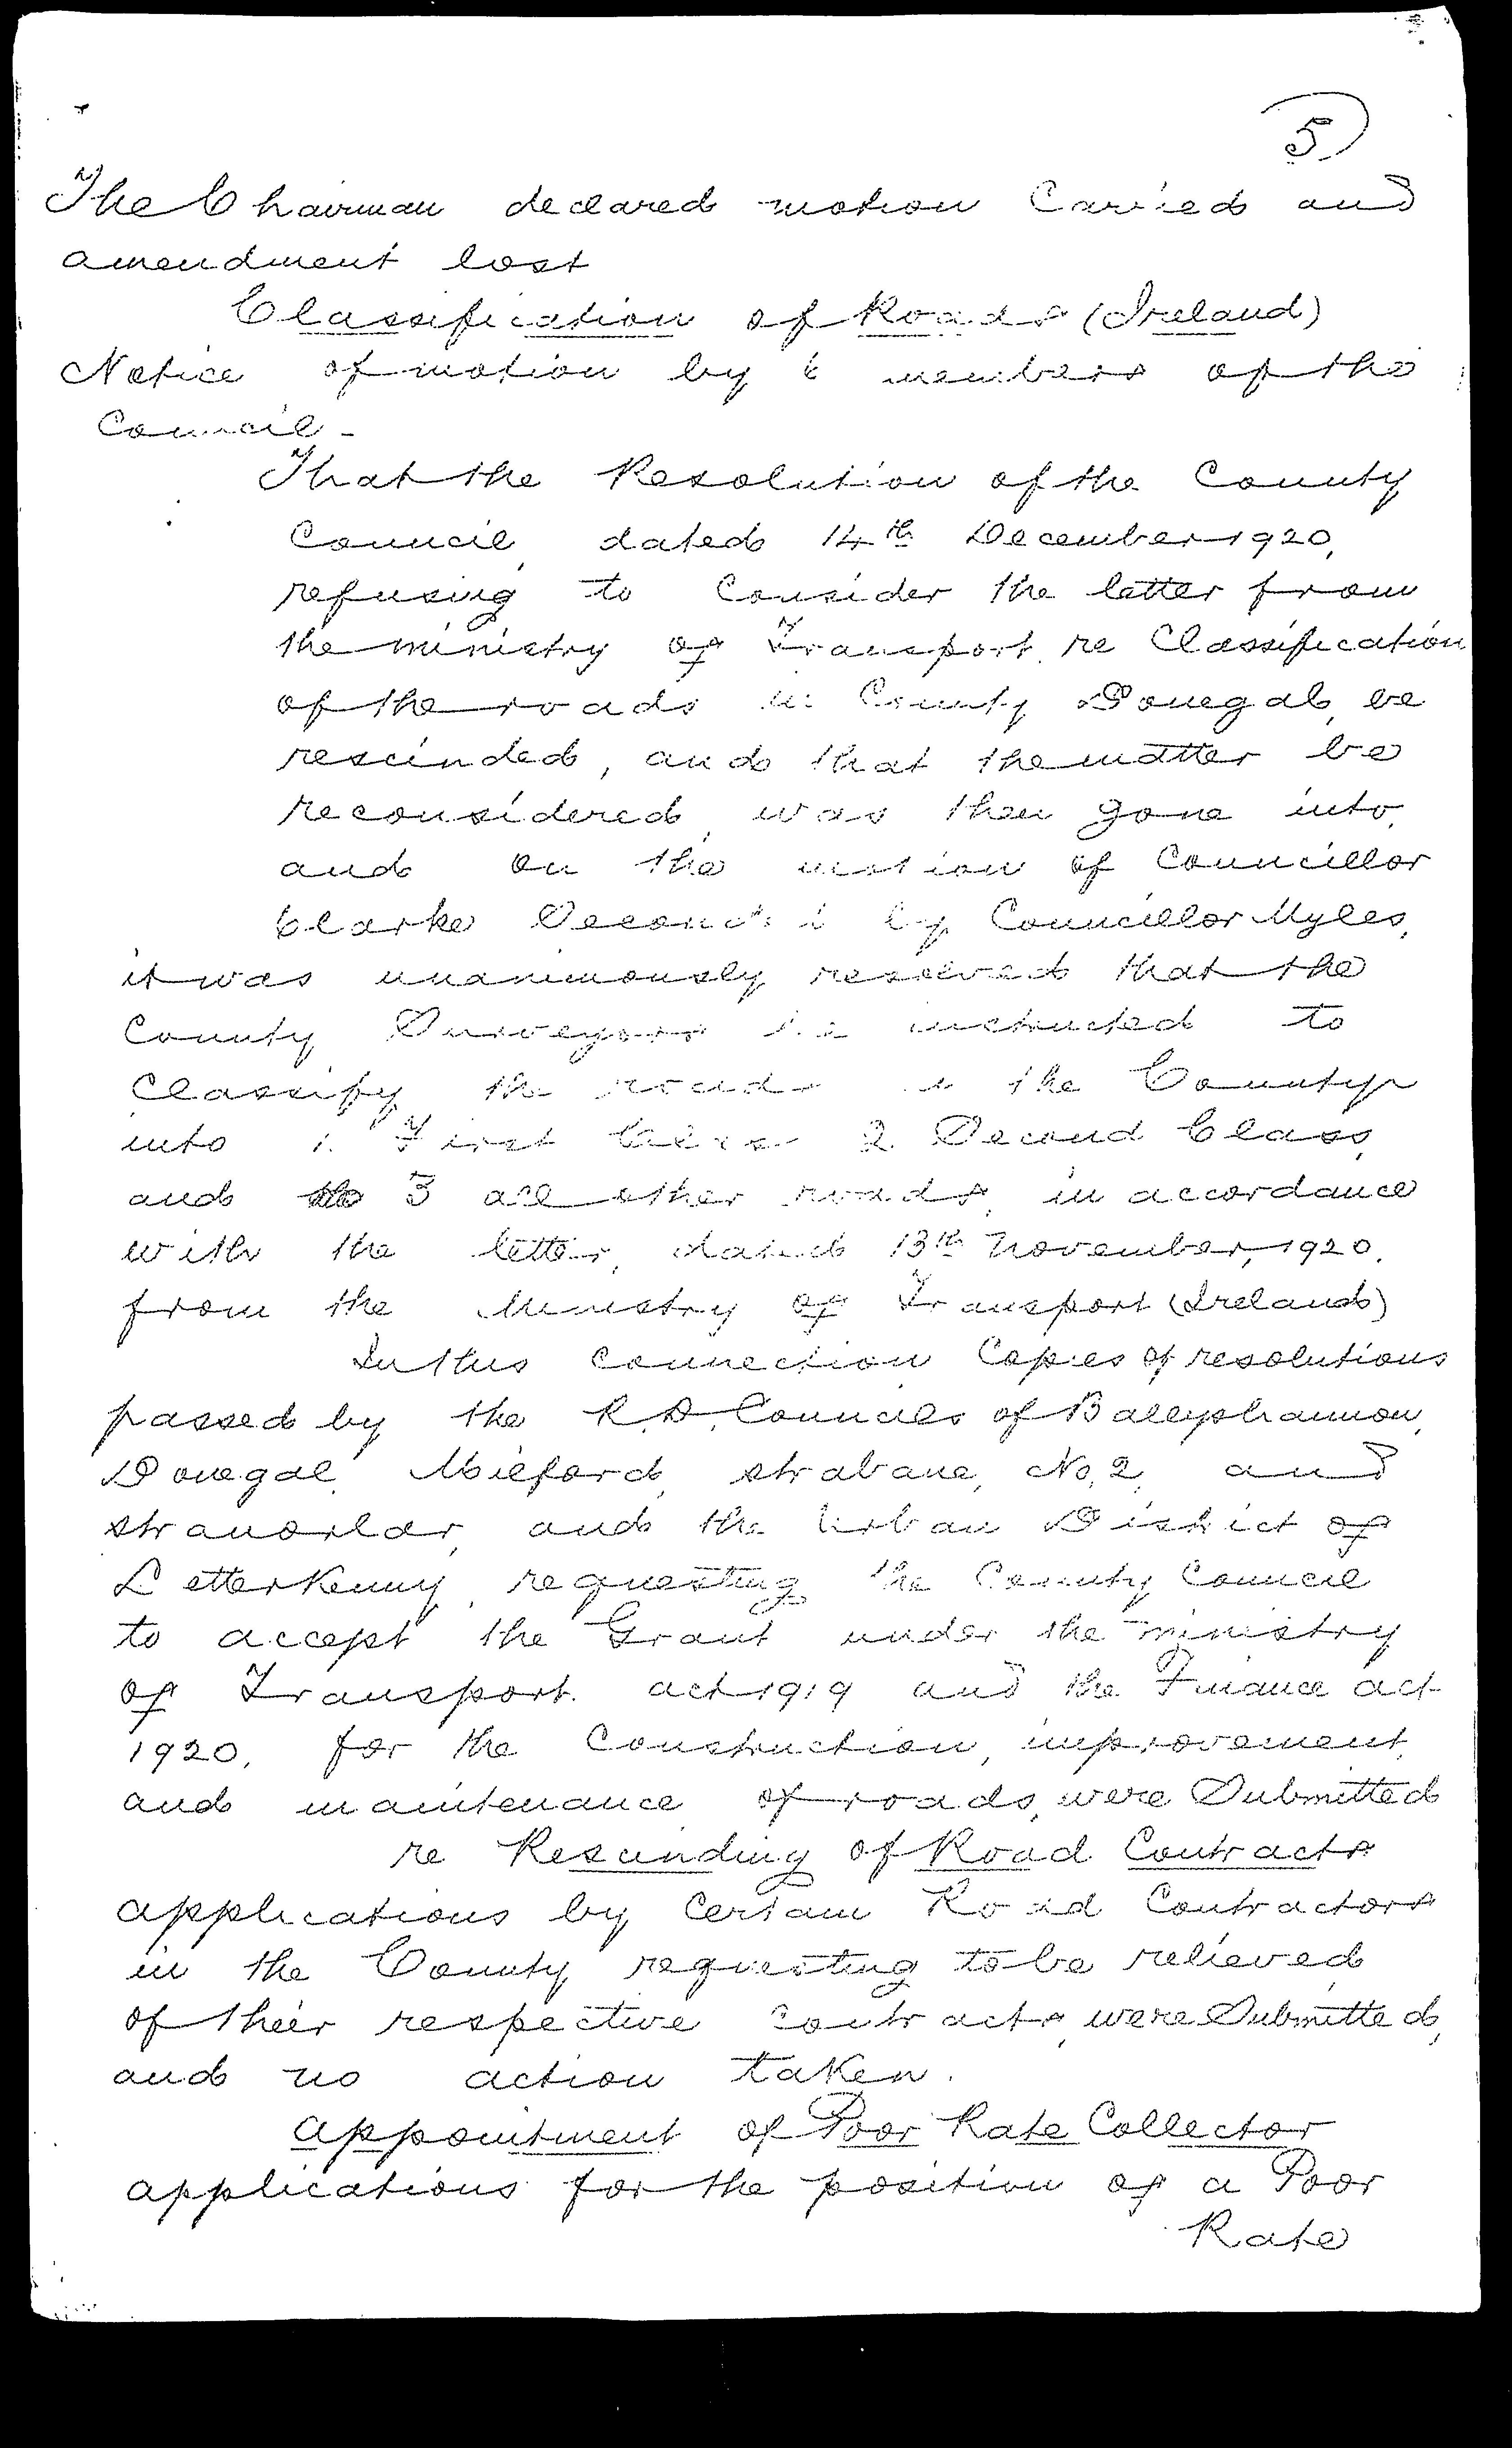 5
The Chairman declared motion Carried and
amendment lost
Classification of Roads (Ireland)
Notice of motion by 6 members of the
Council -
That the Resolution of the County
Council, dated 14th December 1920,
refusing to Consider the letter from
the ministry of Transport, re Classification
of the roads in County Donegal, be
rescinded, and that the matter be
reconsidered, was then gone into,
and on the motion of Councillor
Clarke Seconded by Councillor Myles,
it was unanimously resolved that the
County Surveyors be instructed to
Classify the roads in the County
into 1. First Class 2 Second Class,
and 3 all other roads, in accordance
with the letter, dated 13th November, 1920,
from the Ministry of Transport (Ireland)
In this connection Copies of resolutions
passed by the R.D. Councils of Ballyshannon,
Donegal, Milford, strabane, No. 2, and
stranorlar, and the Urban District of
Letterkenny, requesting the County Council
to accept the Grant under the ministry
of Transport act 1919 and the Finance act
1920, for the Construction, improvement,
and maintenance of roads, were Submitted
re Rescinding of Road Contracts
applications by Certain Road Contractors
in the County requesting to be relieved
of their respective contracts, were Submitted,
and no action taken.
appointment of Poor Rate Collector
applications for the position of a Poor
Rate